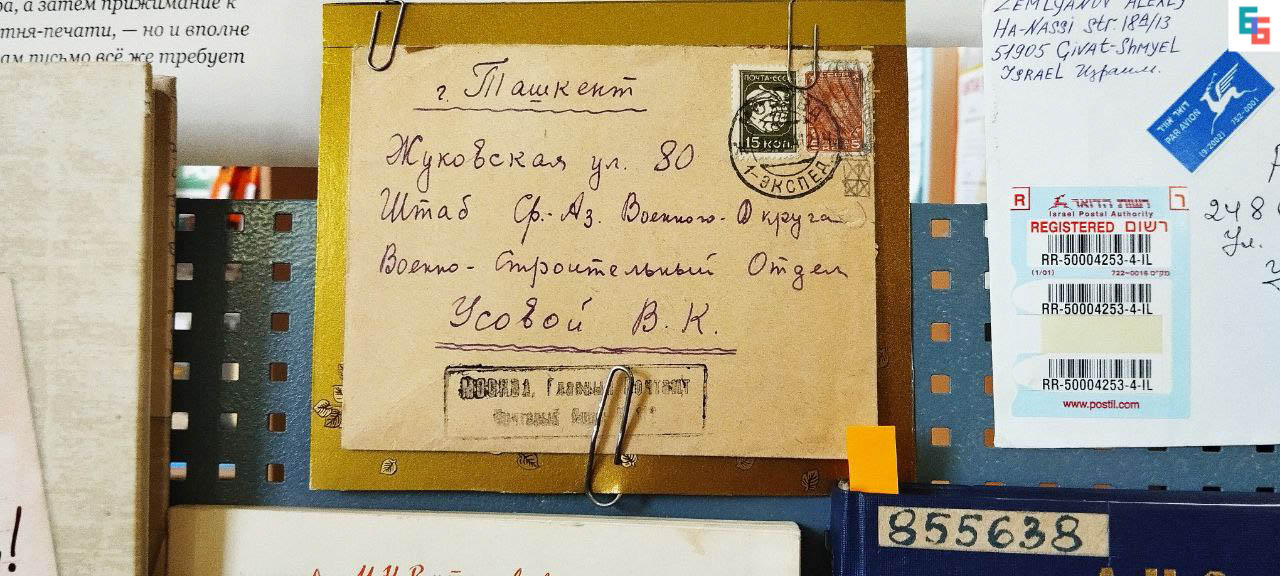 ра, а затем прижимание к
тня-печати, — но и вполне
ам письмо всё же требует
г. Ташкент
Жуковская ул. 80
Штаб Ср.-Аз. Военного-Округа
Военно-Строительный Отдел
Усовой В. К.
ПОЧТА-СССР
15 КОП.
1-ЭКСПЕД
МОСКВА, Главный Почтамт
ZEMLYANOV ALEXEY
HA-NASSI Str. 18A/13
51905 GIVAT-SHMYEL
ISRAEL Израиль.
דואר אויר
PAR AVION
(9.2002) 752-0001
R
רשות הדואר
Israel Postal Authority
REGISTERED רשום
RR-50004253-4-IL
(1/01) מק"ט 722-0016
RR-50004253-4-IL
RR-50004253-4-IL
www.postil.com
248
Ул.
855638
!